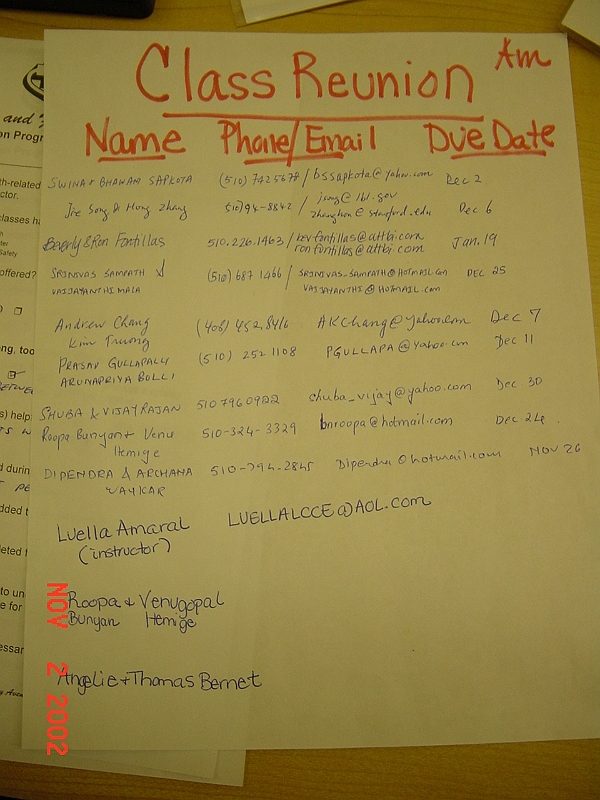 Am
Class Reunion
Name Phone/Email Due Date
SWINA & BHAWAN SAPKOTA (510) 7425678 / bssapkota@yahoo.com Dec 2
Jie Song & Hong Zhang jsong@lbl.gov Dec 6
Beverly & Ron Fontillas 510.226.1463 / bevfontillas@attbi.com Jan. 19
ronfontillas@attbi.com
SRINIVAS SAMPATH (510) 687 1466 / SRINIVAS_SAMPATH@HOTMAIL.COM DEC 25
VAIJAYANTHIMALA VAIJAYANTHI@HOTMAIL.COM
Andrew Chang (408) 452.8416 AKChang@yahoo.com Dec 7
Kim Truong
PRASAV GULLAPALLI (510) 252 1108 PGULLAPA@Yahoo.com Dec 11
ARUNAPRIYA BOLLI
SHUBA & VIJAY RAJAN 510 796 0922 chuba_vijay@yahoo.com Dec 30
Roopa Bunyan & Venu 510-324-3329 bnroopa@hotmail.com Dec 24.
Hemige
DIPENDRA & ARCHANA 510-794-2845 Dipendra@hotmail.com NOV 26
WAYKAR
Luella Amaral LUELLALCCE@AOL.COM
(instructor)
Roopa & Venugopal
Bunyan Hemige
Angelie & Thomas Bernet
NOV 2 2002
and
on Progr
th-related
ctor.
classes ha
Safety
offered?
ng, too
s) help
d during
dded t
leted f
to un
e for
essar